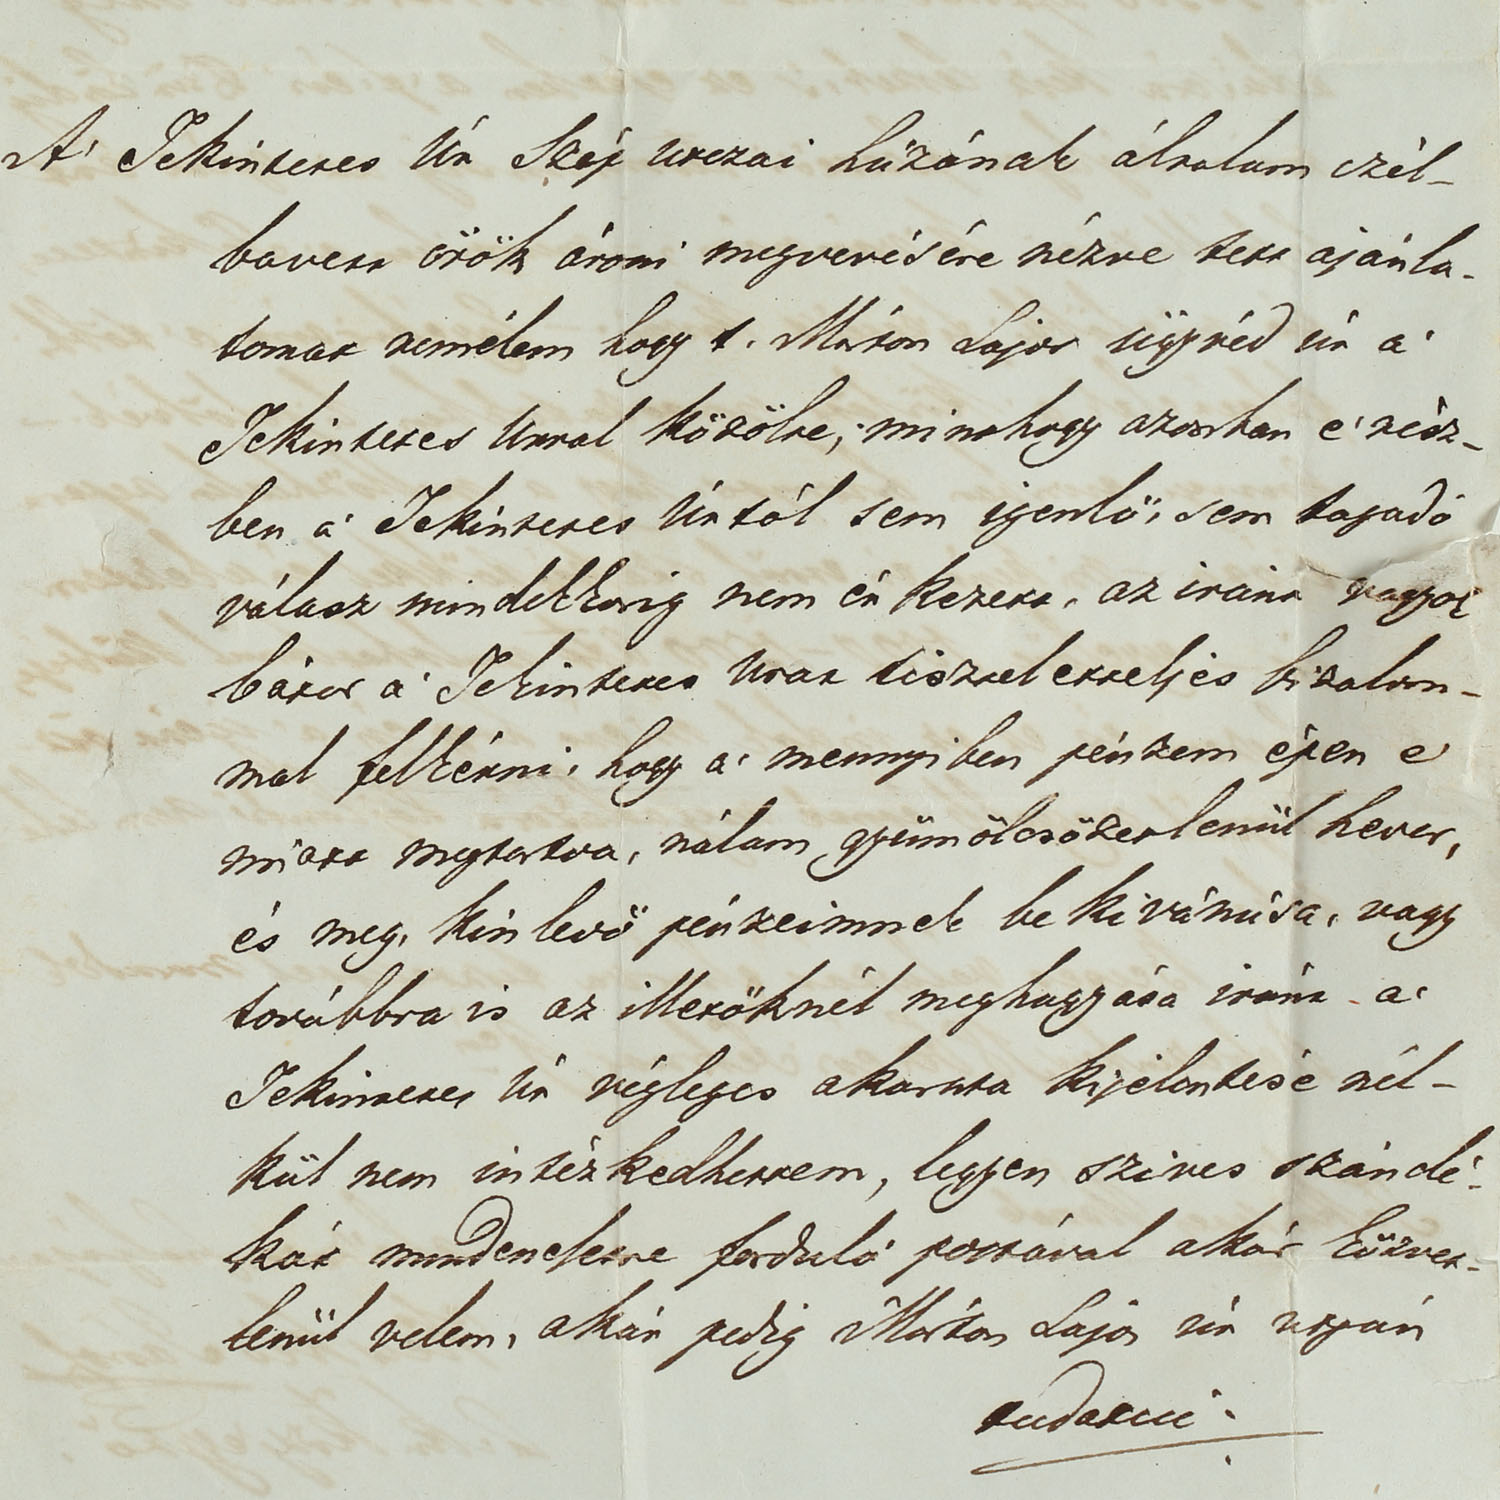 A' Tekintetes Úr Szép utczai házának általam czél-
bavett örök ároni megvevésére nézve tett ajánla-
tomat remélem hogy t. Márton Lajos ügyvéd úr a'
Tekintetes Urral közölte; minthogy azonban e' rész-
ben a' Tekintetes Úrtól sem igenlő, sem tagadó
válasz mindekkorig nem érkezett, az iránt vagyok
bátor a' Tekintetes Urat tisztelettteljes bizalom-
mal felkérni, hogy a' mennyiben pénzem épen e
miatt megtartva, nálam gyümölcsözetlenül hever,
és meg, kinlevő pénzeimnek be kivánása, vagy
továbbra is az illetőknél meghagyása iránt a'
Tekintetes Úr végleges akaratta kijelentése nél-
kül nem intézkedhettem, legyen szives szándé-
kát mindenesetre forduló postával akár közvet-
lenül velem, akár pedig Márton Lajos úr utján
tudatni.